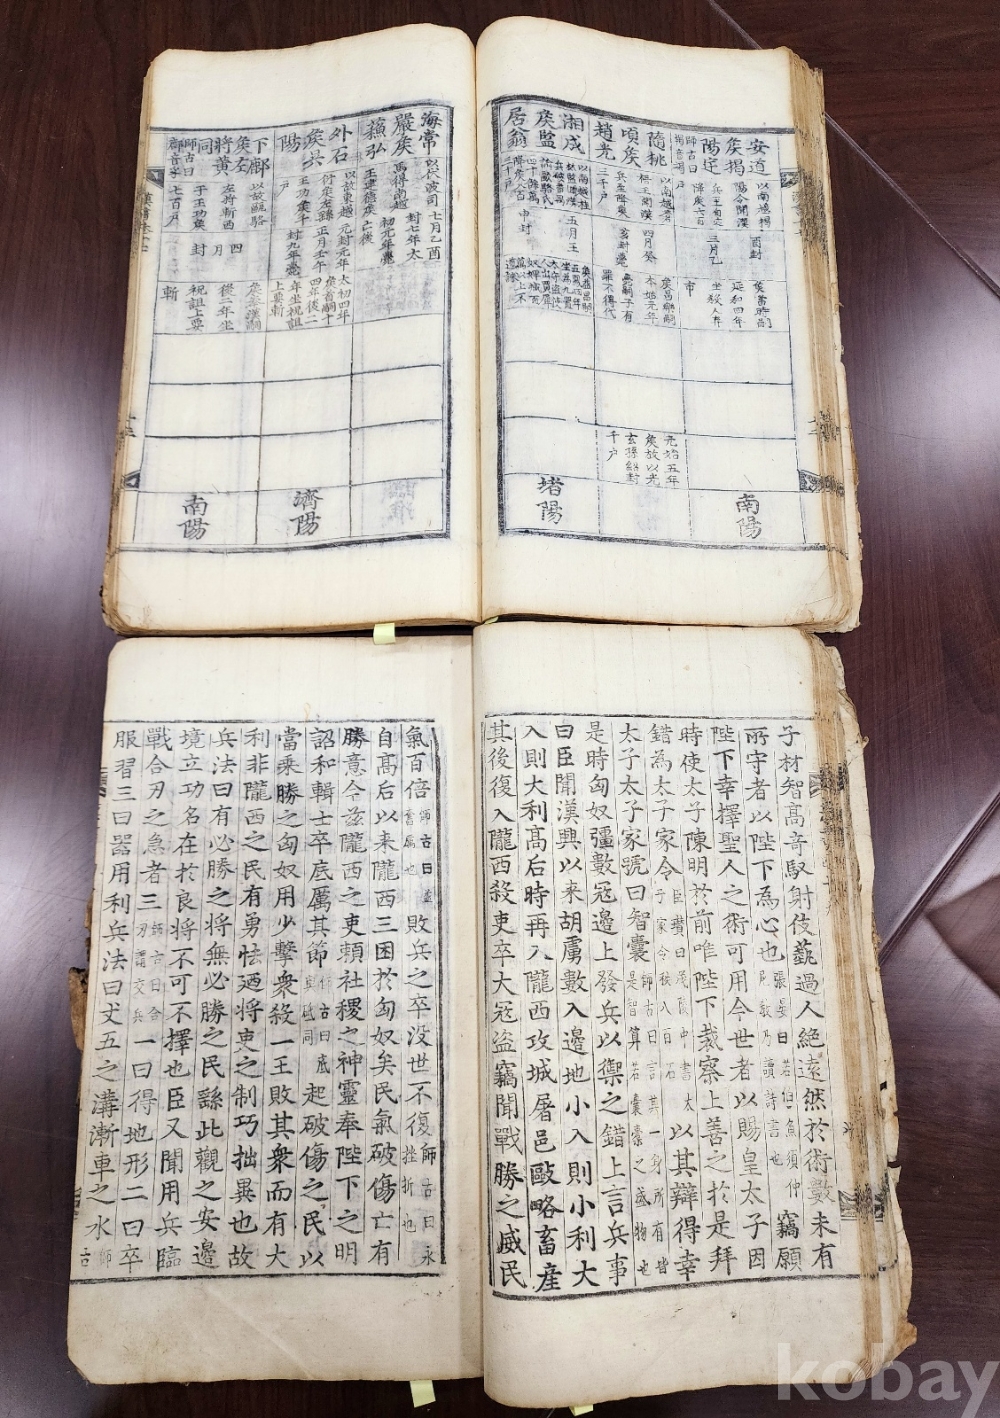 安道
矦揭
陽定
師古曰
揭音竭
以南越揭
陽令聞漢
兵至自定
降矦六百
戶
三月乙
酉封
矦當時嗣
延和四年
坐殺人弃
市
南陽
隨桃
頃矦
趙光
三千戶
四月癸
矦昌樂嗣
本始元年
嗣子有
罪不得代
元始五年
矦放以光
玄孫紹封
千戶
湘成
矦監
居翁
五月壬
申封
堵陽
海常
嚴矦
蘇弘
七月乙酉
封七年太
初元年薨
亡後
外石
矦吳
陽
以故東越
衍矦左繇
王功矦千
戶
元封元年
正月壬午
封九年薨
太初四年
矦首嗣十
四年後二
年坐祝詛
上要斬
濟陽
下鄜
矦左
將黃
同
師古曰
鄜音孚
以故甌駱
左將斬西
于王功矦
七百戶
四
月
封
矦奉漢嗣
後二年坐
祝詛上要
斬
南陽
子材智高竒馭射伎藝過人絶遠然於術數未有
所守者以陛下為心也張晏曰若伯魚須仲尼敎乃讀詩言也竊願
陛下幸擇聖人之術可用今世者以賜皇太子因
時使太子陳明於前唯陛下裁察上善之於是拜
錯為太子家令臣瓚曰茂陵中書太子家令秩八百石以其辯得幸
太子太子家號曰智囊師古曰言其一身所有皆是智筭若囊橐之盛物也
是時匈奴彊數寇邊上發兵以禦之錯上言兵事
曰臣聞漢興以来胡虜數入邊地小入則小利大
入則大利高后時再入隴西攻城屠邑敺略畜産
其後復入隴西殺吏卒大寇盜竊聞戰勝之威民
氣百倍師古曰益奮厲也敗兵之卒没世不復師古曰永挫折也
自高后以来隴西三困於匈奴矣民氣破傷亡有
勝意今兹隴西之吏頼社稷之神靈奉陛下之明
詔和輯士卒底厲其節師古曰底與砥同起破傷之民以
當乘勝之匈奴用少擊衆殺一王敗其衆而有大
利非隴西之民有勇怯廼將吏之制巧拙異也故
兵法曰有必勝之將無必勝之民繇此觀之安邊
境立功名在於良將不可不擇也臣又聞用兵臨
戰合刃之急者三師古曰合刃謂交兵一曰得地形二曰卒
服習三曰器用利兵法曰丈五之溝漸車之水師古
kobay